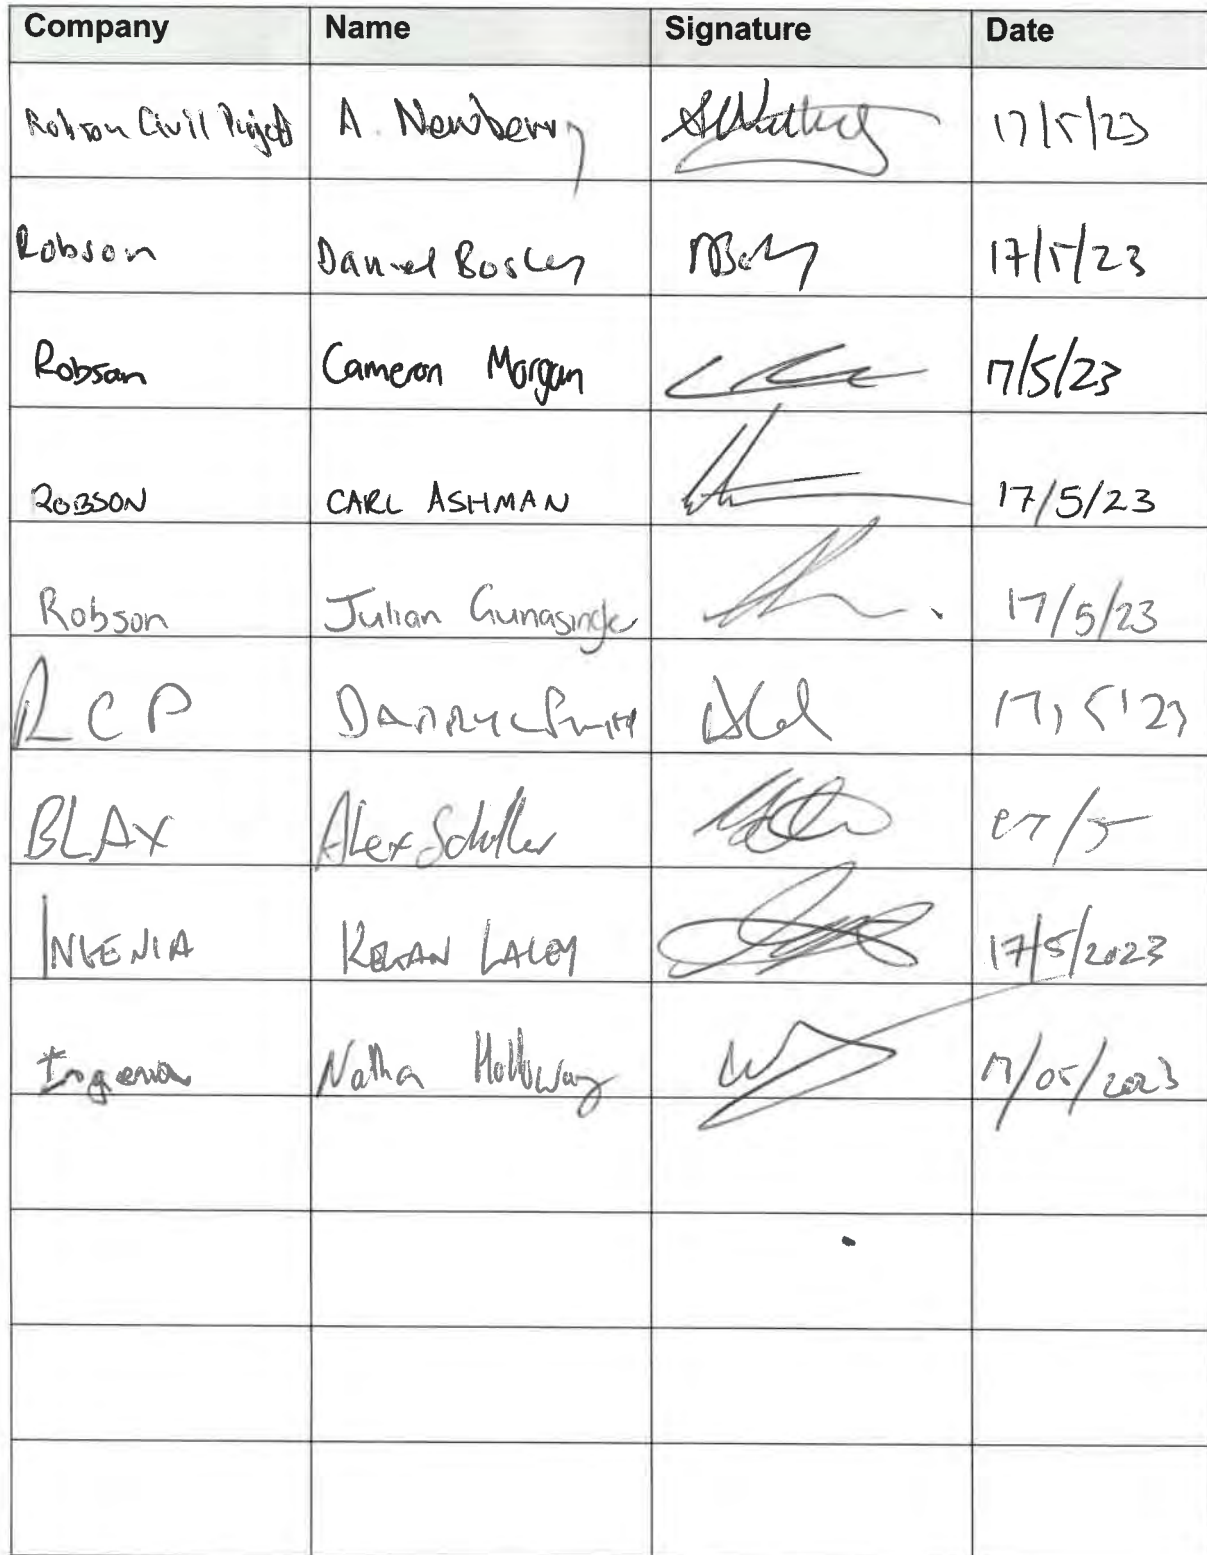 Company Name Signature Date
Robson Civil Projects A. Newberry 17/5/23
Robson Daniel Bosley 17/5/23
Robson Cameron Morgan 17/5/23
ROBSON CARL ASHMAN 17/5/23
Robson Julian Gunasinghe 17/5/23
RCP 17/5/23
BLAX Alex 17/5
INGENIA LACEY 17/5/2023
Ingenia Holloway 17/05/2023